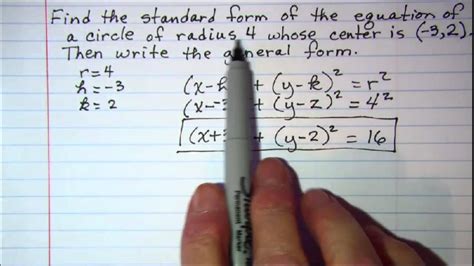 Find the standard form of the equation of
a circle of radius 4 whose center is (-3,2).
Then write the general form.
r=4
h=-3
k=2
(x-h + (y-k)² = r²
(x--3 + (y-2)² = 4²
(x+3 + (y-2)² = 16
Sharpie
Permanent Marker